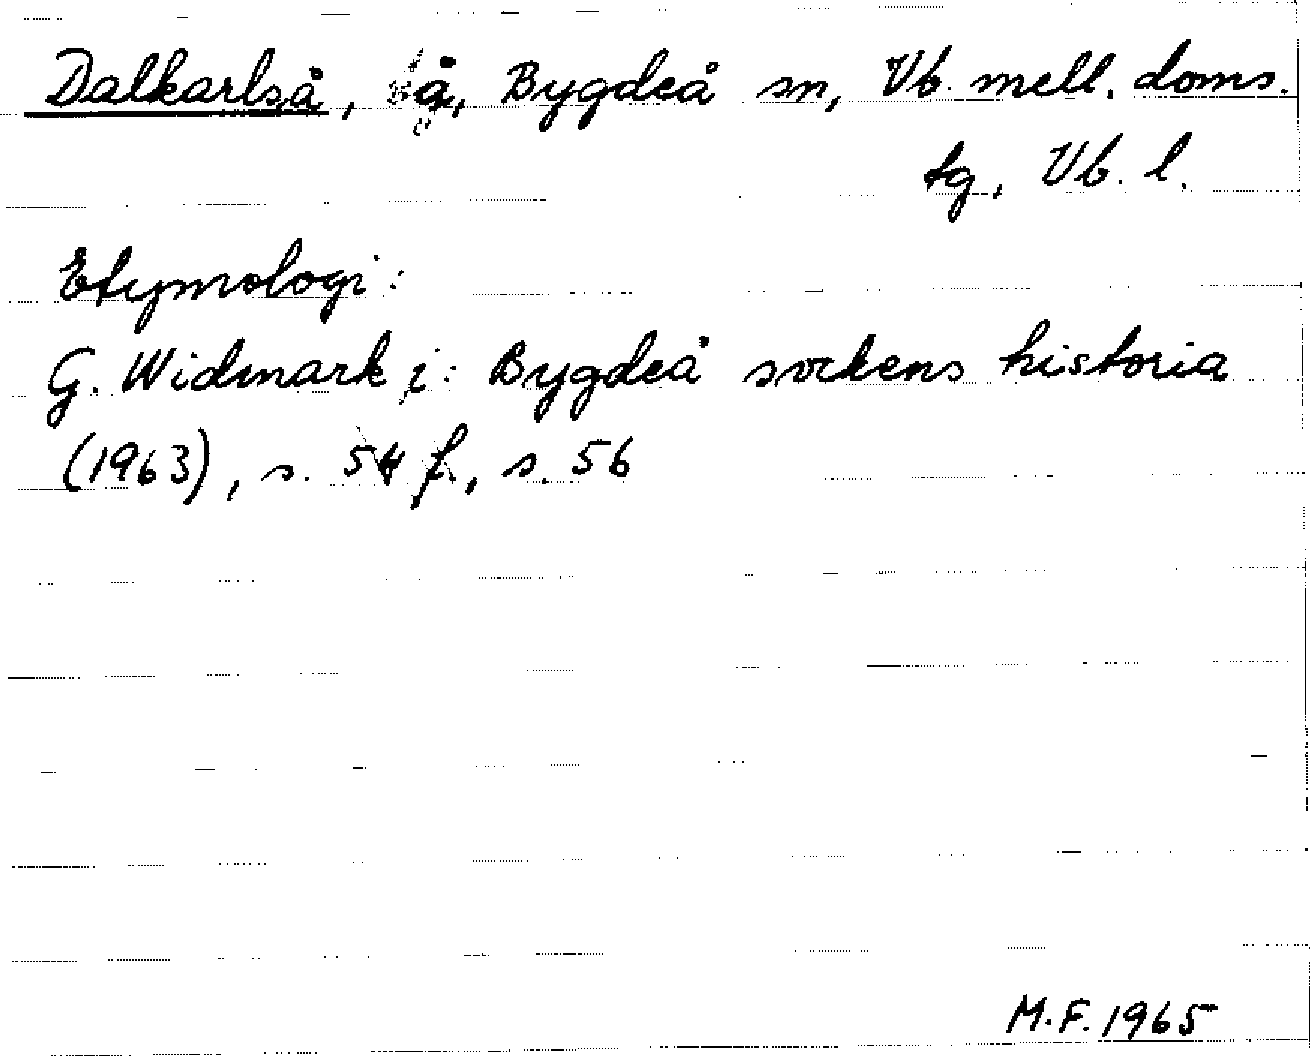 Dalkarlså, å, Bygdeå sn, Vb. mell. doms.
tg, Vb. l.
Etymologi:
G. Widmark i: Bygdeå sockens historia
(1963), s. 54 f., s. 56
M.F. 1965